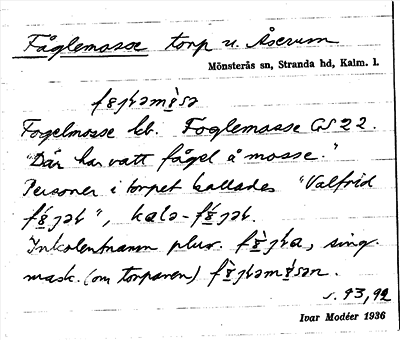 Fåglemosse torp u. Åserum
Mönsterås sn, Stranda hd, Kalm. l.
Fogelmosse kb. Foglemosse GS 22.
"Där har vatt fågel å mosse."
Personer i torpet kallades "Valfrid
Inkolentnamn plur. sing.
mask. (om torparen)
s. 93, 92
Ivar Modéer 1936